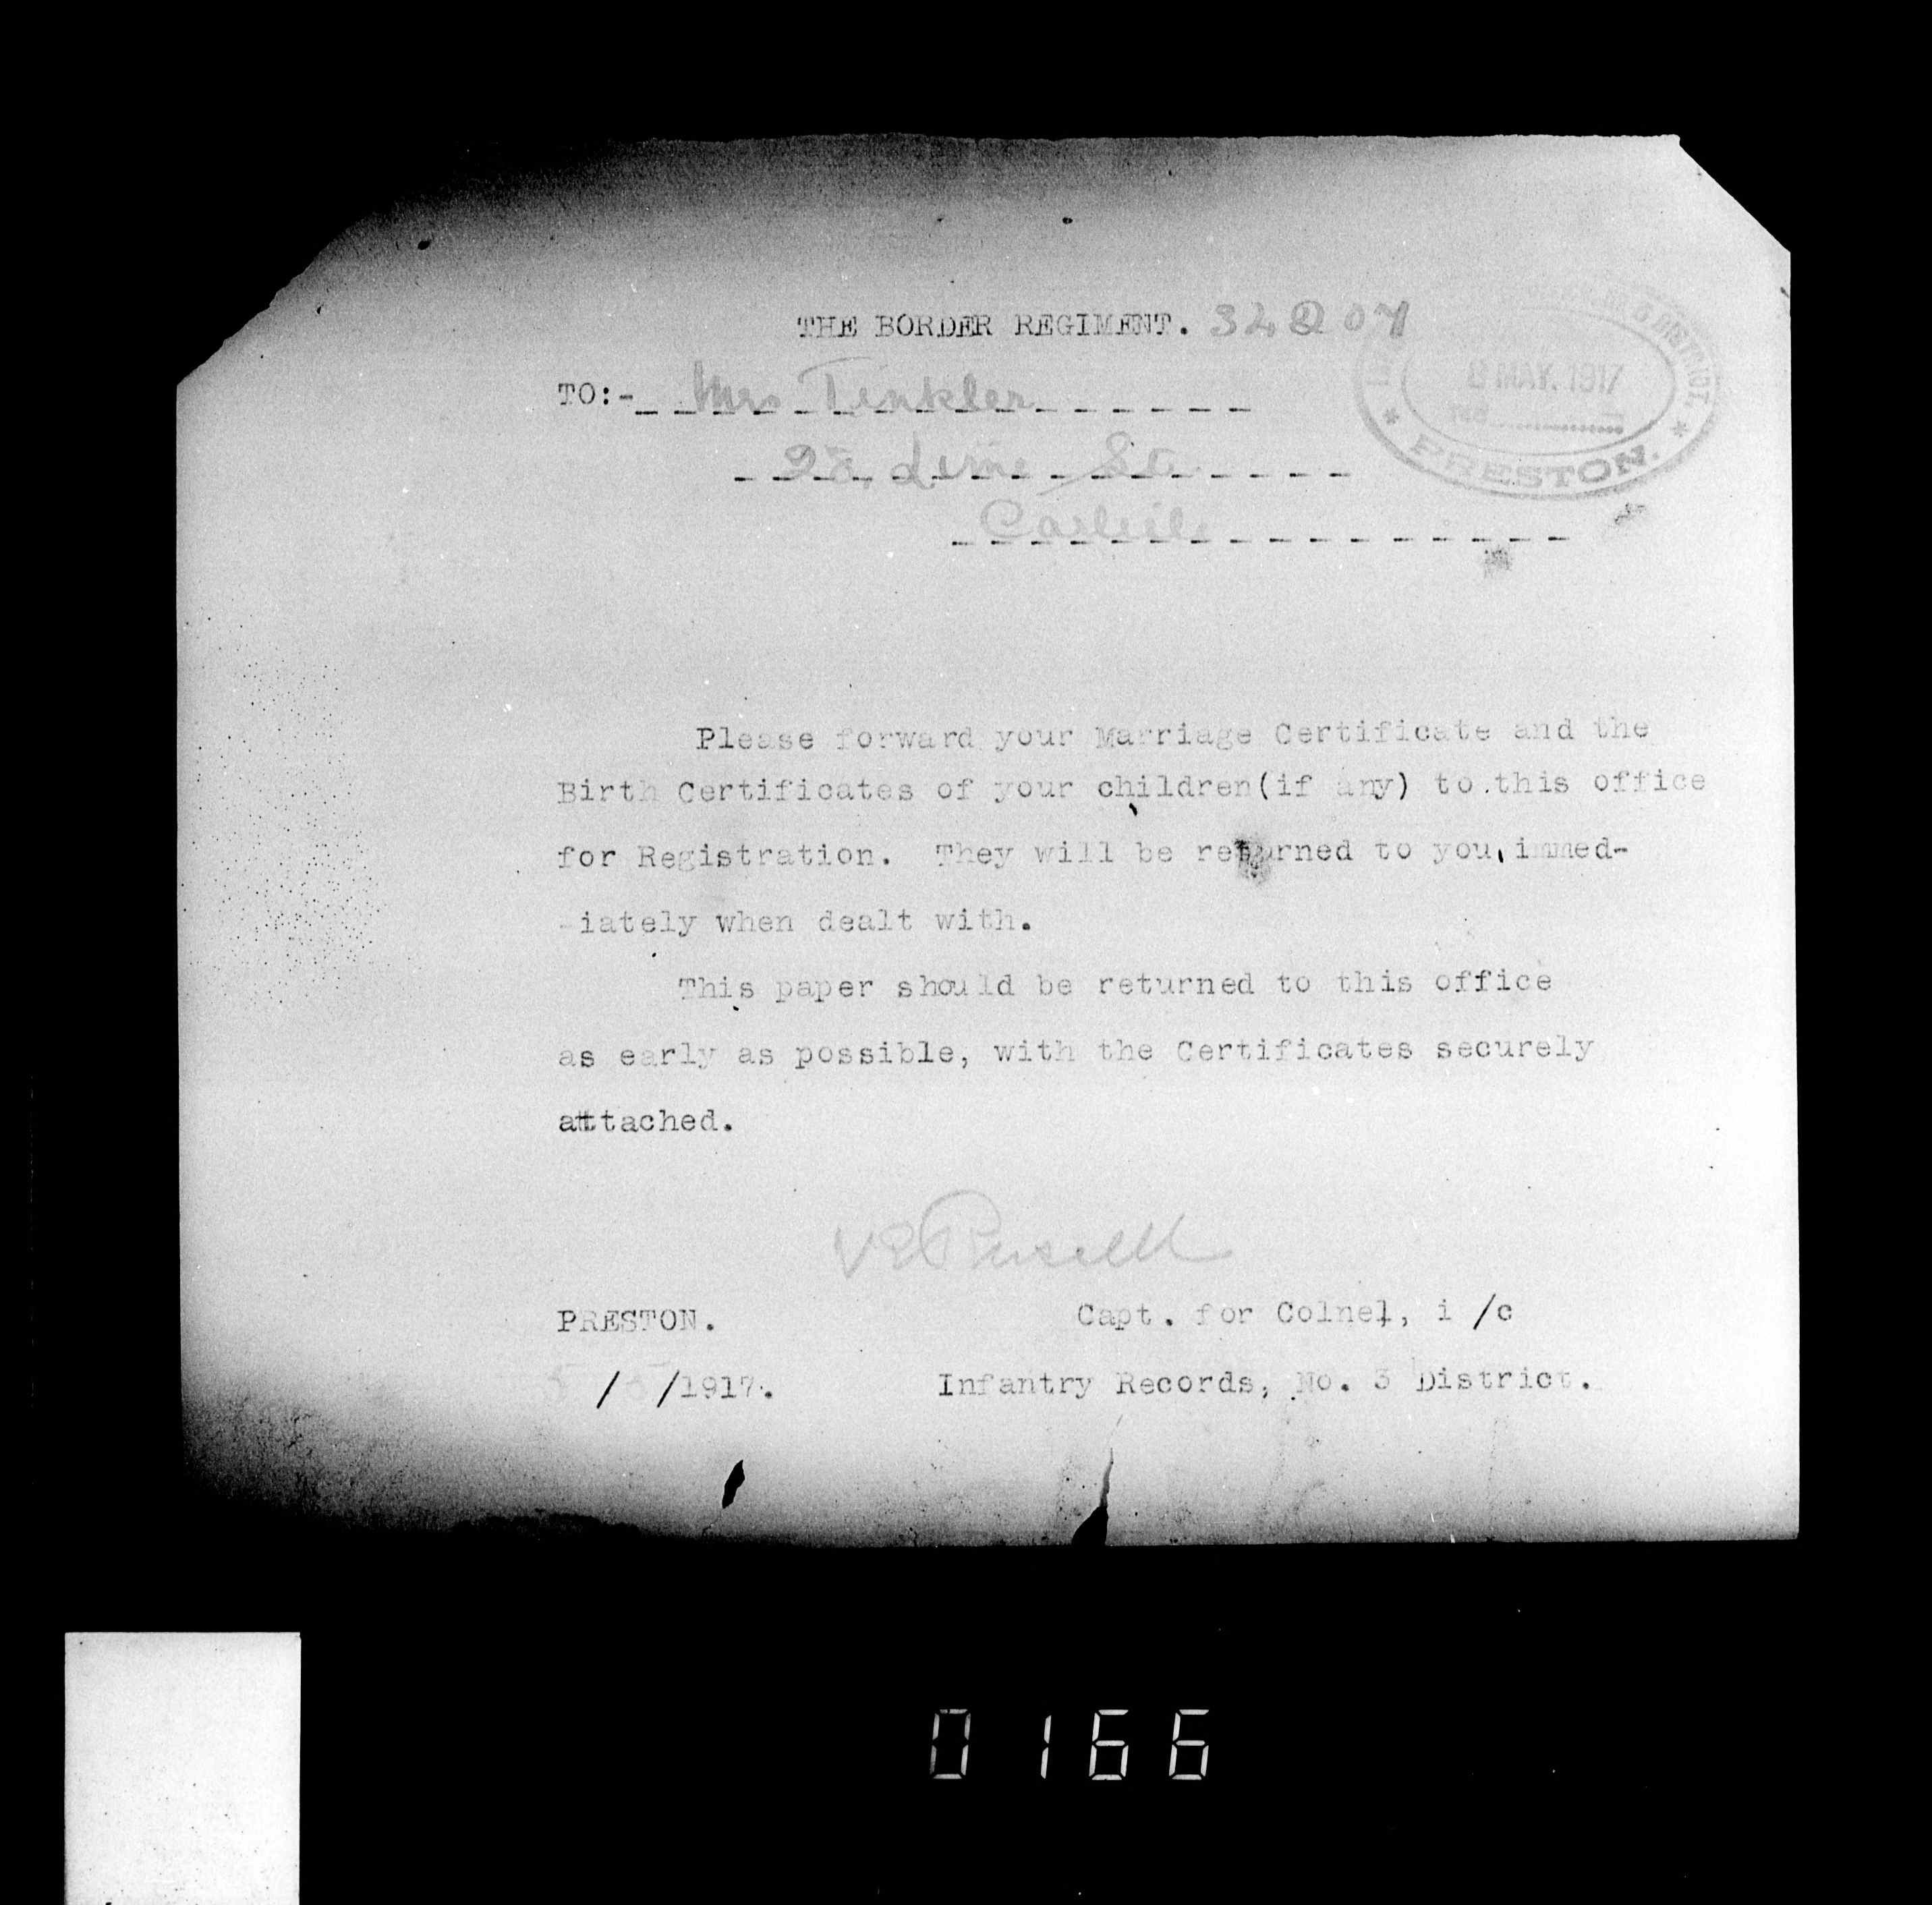 THE BORDER REGIMENT.
TO:- Mrs Tinkler
Lime St.
Carlisle
MAY. 1917
No 3 DISTRICT.
* PRESTON. *
Please forward your Marriage Certificate and the
Birth Certificates of your children(if any) to.this office
for Registration. They will be returned to you, immed-
-iately when dealt with.
This paper should be returned to this office
as early as possible, with the Certificates securely
attached.
Russell
PRESTON. Capt. for Colnel, i /c
/ /1917. Infantry Records, No. 3 District.
0166